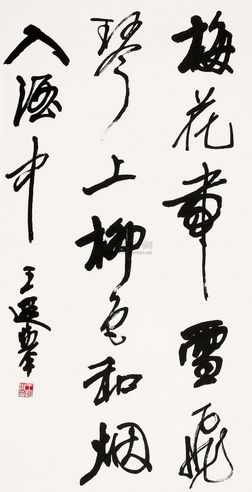 梅花带雪飛
琴上柳色和烟
入酒中
王遐举